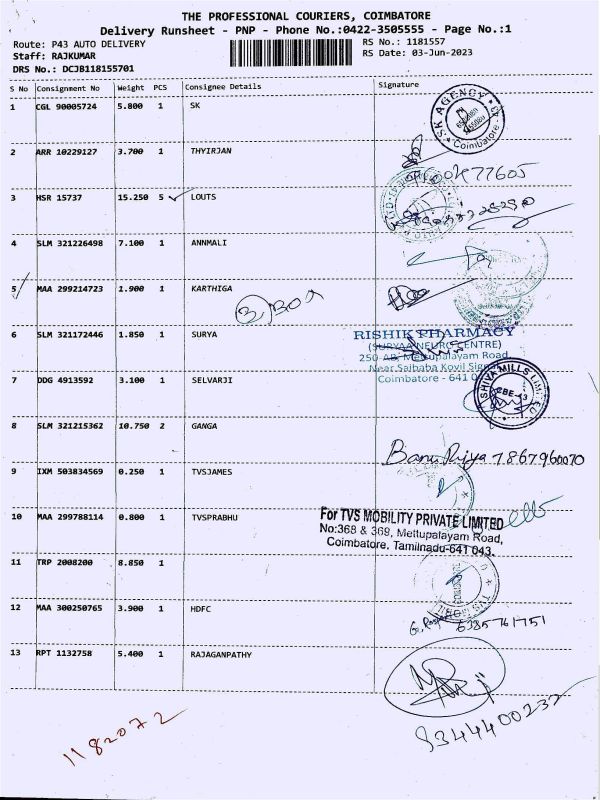 THE PROFESSIONAL COURIERS, COIMBATORE
Delivery Runsheet - PNP - Phone No.:0422-3505555 - Page No.:1
Route: P43 AUTO DELIVERY RS No.: 1181557
Staff: RAJKUMAR RS Date: 03-Jun-2023
DRS No.: DCJB118155701
S No Consignment No Weight PCS Consignee Details Signature
1 CGL 90005724 5.800 1 SK
S.K AGENCY
Coimbatore
2 ARR 10229127 3.700 1 THYIRJAN
3 HSR 15737 15.250 5 LOUTS
4 SLM 321226498 7.100 1 ANNMALI
5 MAA 299214723 1.900 1 KARTHIGA
6 SLM 321172446 1.850 1 SURYA
RISHIK PHARMACY
(SURYAA NEURO CENTRE)
250-AB, Mettupalayam Road,
Near Saibaba Kovil
Coimbatore - 641
7 DDG 4913592 3.100 1 SELVARJI
SHIVA MILLS LIMITED
CBE-43
8 SLM 321215362 10.750 2 GANGA
Banu Priya 7867960070
9 IXM 503834569 0.250 1 TVSJAMES
10 MAA 299788114 0.800 1 TVSPRABHU
For TVS MOBILITY PRIVATE LIMITED
No:368 & 369, Mettupalayam Road,
Coimbatore, Tamilnadu-641 043.
11 TRP 2008200 8.850 1
12 MAA 300250765 3.900 1 HDFC
6385761751
13 RPT 1132758 5.400 1 RAJAGANPATHY
9344400232
1182072